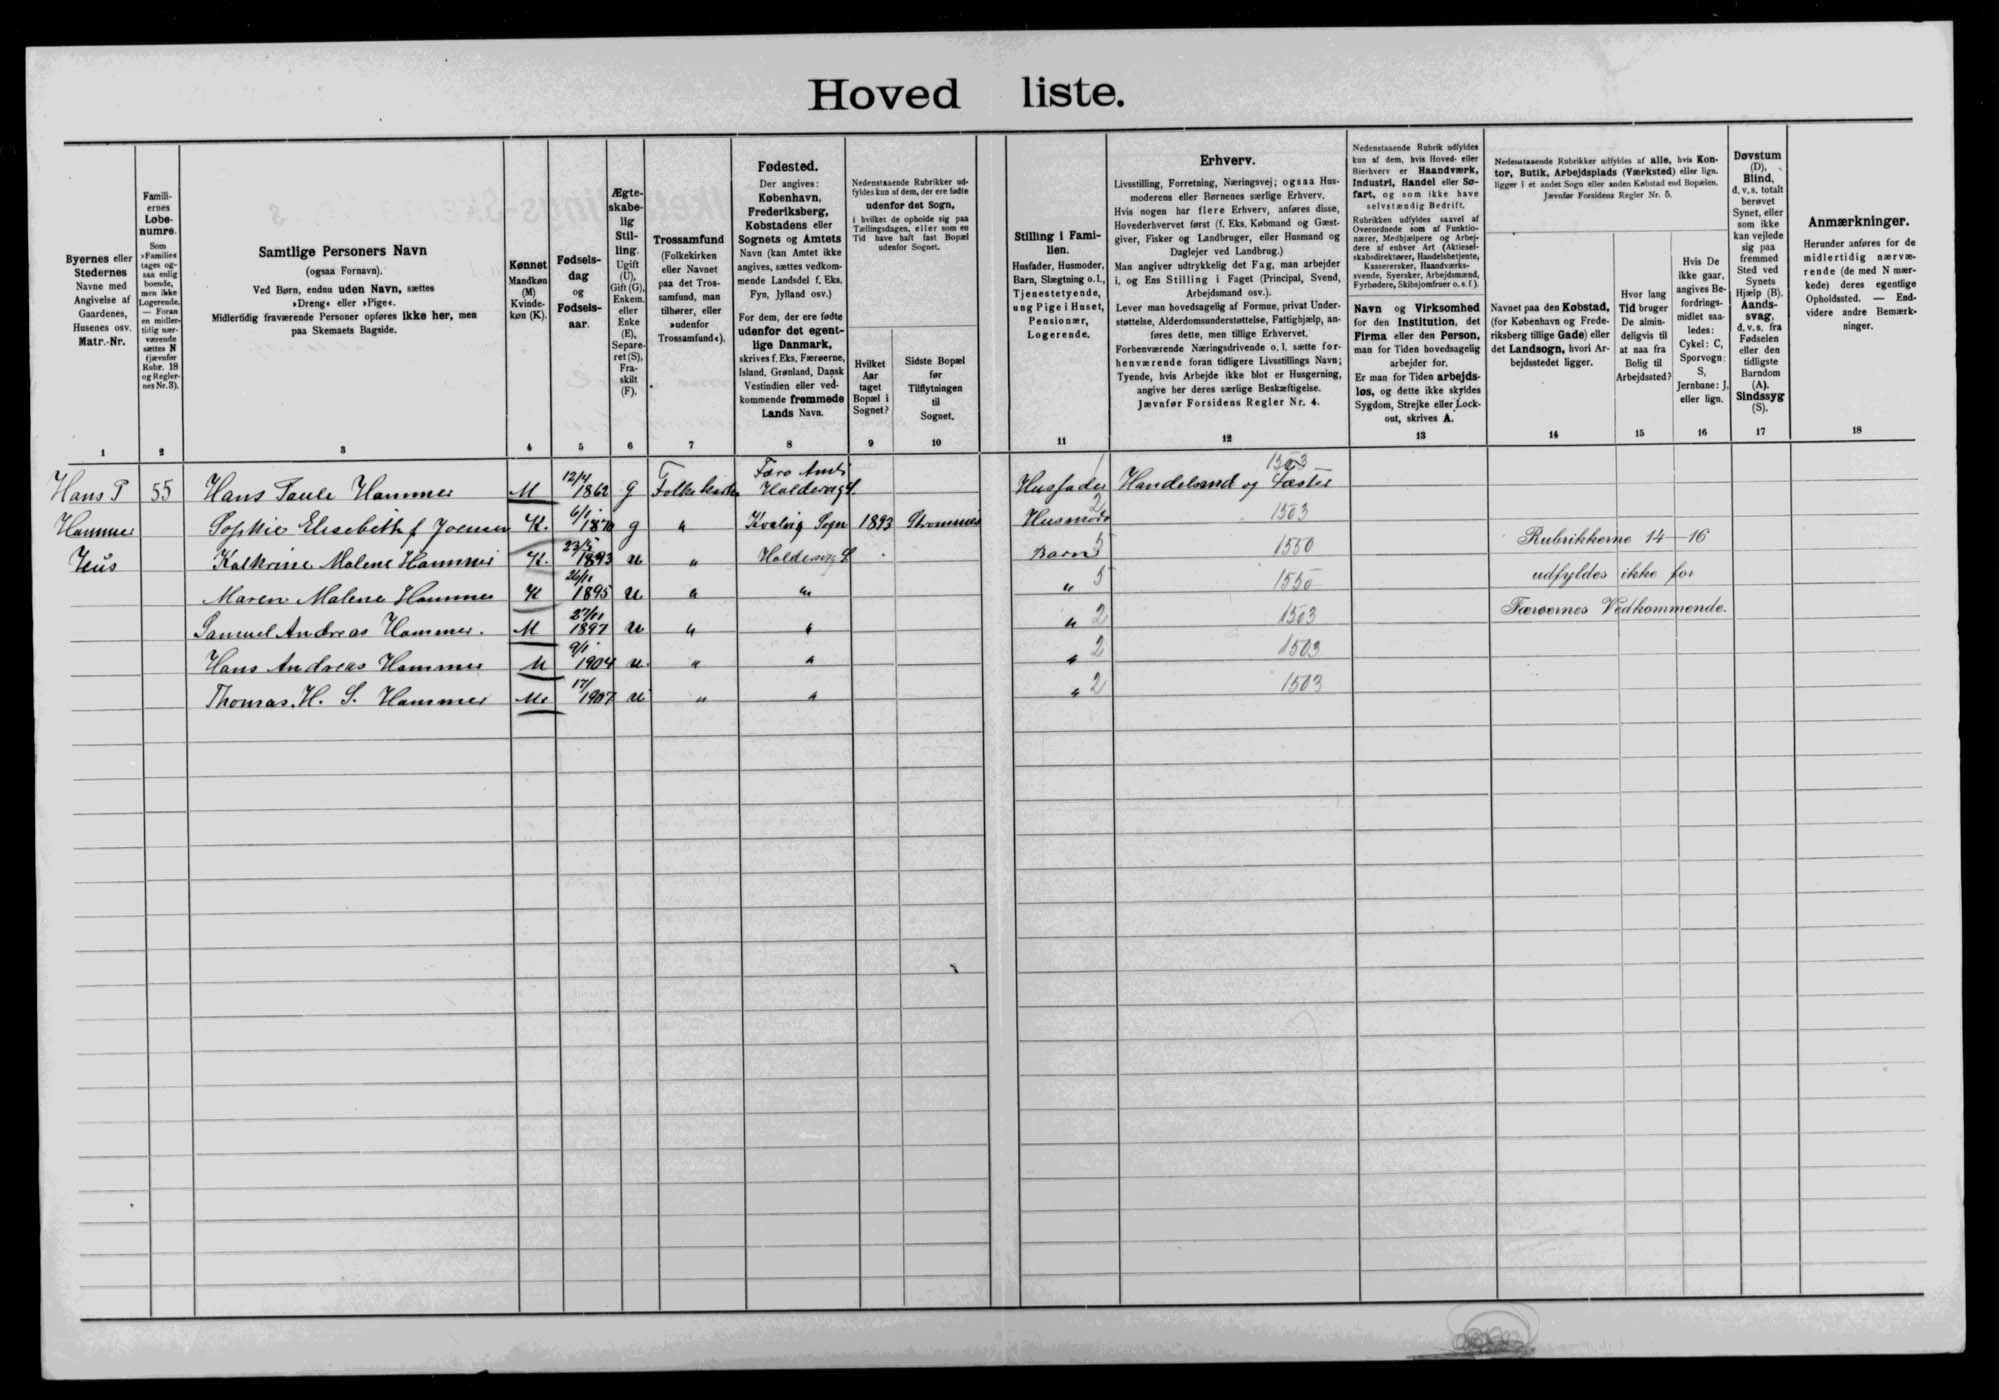 Hovedliste.
Byernes eller
Stedernes
Navne med
Angivelse af
Gaardenes,
Husenes osv.
Matr.-Nr.
1
Famili-
ernes
Løbe-
numre.
Som
»Familie«
tages og-
saa enlig
boende,
men ikke
Logerende.
— Foran
en midler-
tidig nær-
værende
sættes N
(jævnfør
Rubr. 18
og Regler-
nes Nr. 3).
2
Samtlige Personers Navn
(ogsaa Fornavn).
Ved Børn, endnu uden Navn, sættes
»Dreng« eller »Pige«.
Midlertidig fraværende Personer opføres ikke her, men
paa Skemaets Bagside.
3
Kønnet
Mandkøn
(M)
Kvinde-
køn (K).
4
Fødsels-
dag
og
Fødsels-
aar.
5
Ægte-
skabe-
lig
Stil-
ling.
Ugift
(U),
Gift (G),
Enkem.
eller
Enke
(E),
Separe-
ret (S),
Fra-
skilt
(F).
6
Trossamfund
(Folkekirken
eller Navnet
paa det Tros-
samfund, man
tilhører, eller
»udenfor
Trossamfund«).
7
Fødested.
Der angives:
København,
Frederiksberg,
Købstadens eller
Sognets og Amtets
Navn (kan Amtet ikke
angives, sættes vedkom-
mende Landsdel f. Eks.
Fyn, Jylland osv.)
For dem, der ere fødte
udenfor det egent-
lige Danmark,
skrives f. Eks. Færøerne,
Island, Grønland, Dansk
Vestindien eller ved-
kommende fremmede
Lands Navn.
8
Nedenstaaende Rubrikker ud-
fyldes kun af dem, der ere fødte
udenfor det Sogn,
i hvilket de opholde sig paa
Tællingsdagen, eller som en
Tid have haft fast Bopæl
udenfor Sognet.
Hvilket
Aar
taget
Bopæl i
Sognet?
9
Sidste Bopæl
før
Tilflytningen
til
Sognet.
10
Stilling i Fami-
lien.
Husfader, Husmoder,
Barn, Slægtning o. l.,
Tjenestetyende,
ung Pige i Huset,
Pensionær,
Logerende.
11
Erhverv.
Livsstilling, Forretning, Næringsvej; ogsaa Hus-
moderens eller Børnenes særlige Erhverv.
Hvis nogen har flere Erhverv, anføres disse,
Hovederhvervet først (f. Eks. Købmand og Gæst-
giver, Fisker og Landbruger, eller Husmand og
Daglejer ved Landbrug.)
Man angiver udtrykkelig det Fag, man arbejder
i, og Ens Stilling i Faget (Principal, Svend,
Arbejdsmand osv.).
Lever man hovedsagelig af Formue, privat Under-
støttelse, Alderdomsunderstøttelse, Fattighjælp, an-
føres dette, men tillige Erhvervet.
Forhenværende Næringsdrivende o. l. sætte for-
henværende foran tidligere Livsstillings Navn;
Tyende, hvis Arbejde ikke blot er Husgerning,
angive her deres særlige Beskæftigelse.
Jævnfør Forsidens Regler Nr. 4.
12
Nedenstaaende Rubrik udfyldes
kun af dem, hvis Hoved- eller
Bierhverv er Haandværk,
Industri, Handel eller Sø-
fart, og som ikke have
selvstændig Bedrift.
Rubrikken udfyldes saavel af
Overordnede som af Funktio-
nærer, Medhjælpere og Arbej-
dere af enhver Art (Aktiesel-
skabsdirektører, Handelsbetjente,
Kasserersker, Haandværks-
svende, Syersker, Arbejdsmænd,
Fyrbødere, Skibsjomfruer o. s. f.).
Navn og Virksomhed
for den Institution, det
Firma eller den Person,
man for Tiden hovedsagelig
arbejder for.
Er man for Tiden arbejds-
løs, og dette ikke skyldes
Sygdom, Strejke eller Lock-
out, skrives A.
13
Nedenstaaende Rubrikker udfyldes af alle, hvis Kon-
tor, Butik, Arbejdsplads (Værksted) eller lign.
ligger i et andet Sogn eller anden Købstad end Bopælen.
Jævnfør Forsidens Regler Nr. 5.
Navnet paa den Købstad,
(for København og Frede-
riksberg tillige Gade) eller
det Landsogn, hvori Ar-
bejdsstedet ligger.
14
Hvor lang
Tid bruger
De almin-
deligvis til
at naa fra
Bolig til
Arbejdssted?
15
Hvis De
ikke gaar,
angives Be-
fordrings-
midlet saa-
ledes:
Cykel: C,
Sporvogn:
S,
Jernbane: J,
eller lign.
16
Døvstum
(D),
Blind,
d. v. s. totalt
berøvet
Synet, eller
som ikke
kan vejlede
sig paa
fremmed
Sted ved
Synets
Hjælp (B).
Aands-
svag,
d. v. s. fra
Fødselen
eller den
tidligste
Barndom
(A).
Sindssyg
(S).
17
Anmærkninger.
Herunder anføres for de
midlertidig nærvæ-
rende (de med N mær-
kede) deres egentlige
Opholdssted. — End-
videre andre Bemærk-
ninger.
18
Hans P 55 Hans Paule Hammer M 12/4 1862 g Folkekirken Færø Amt Haldersvig S. Husfader 1 Handelsmd og Fæster 1503
Hammer Sophie Elisebeth f Joensen K. 6/1 1870 g " Kvalvig Sogn 1893 Strømnes Husmoder 2 1503
Hus Kathrine Malene Hammer K. 23/5 1893 u " Haldersvig S. Barn 5 1550 Rubrikkerne 14-16
Maren Malene Hammer K 26/11 1895 u " " " 5 1550 udfyldes ikke for
Samuel Andreas Hammer. M 27/11 1897 u " " " 2 1503 Færøernes Vedkommende.
Hans Andreas Hammer M 9/1 1904 u. " " " 2 1503
Thomas. H. S. Hammer M. 17/ 1907 u " " " 2 1503